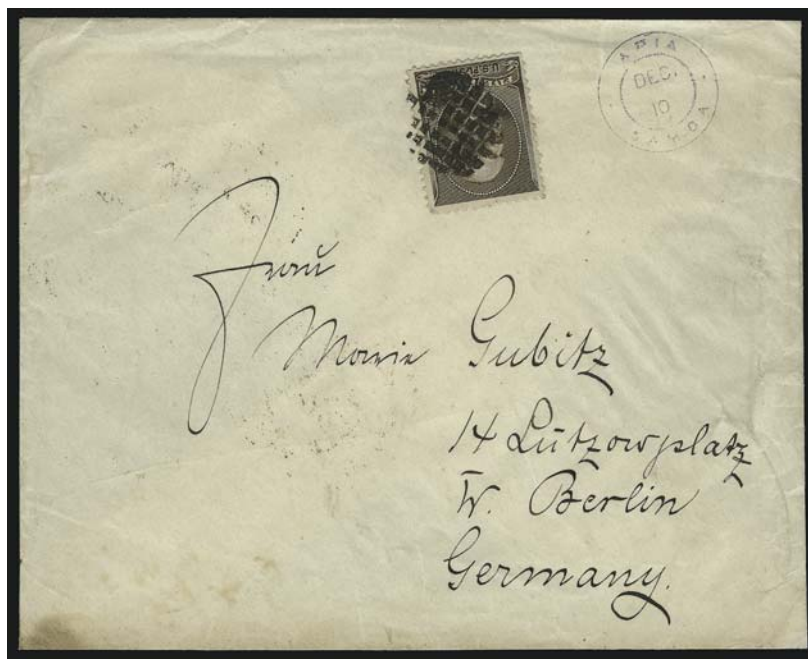 APIA
DEC.
10
SAMOA
Frau
Marie Gubitz
14 Lützowplatz
W. Berlin
Germany.